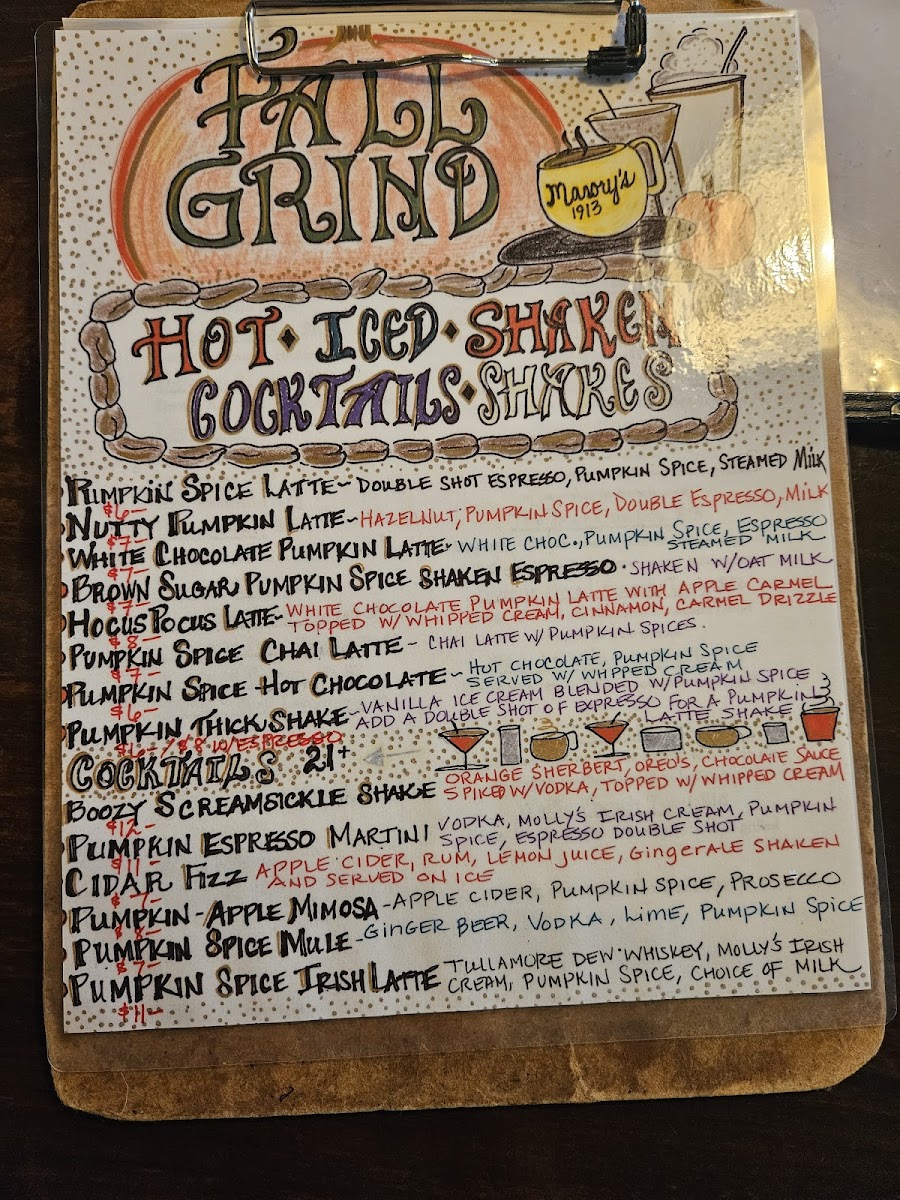 FALL
GRIND
Mavory's
1913
HOT · ICED · SHAKEN
COCKTAILS · SHAKES
PUMPKIN SPICE LATTE~ DOUBLE SHOT ESPRESSO, PUMPKIN SPICE, STEAMED MILK
$6-
NUTTY PUMPKIN LATTE~HAZELNUT, PUMPKIN SPICE, DOUBLE ESPRESSO, MILK
$7-
WHITE CHOCOLATE PUMPKIN LATTE~ WHITE CHOC., PUMPKIN SPICE, ESPRESSO
STEAMED MILK
$7-
BROWN SUGAR PUMPKIN SPICE SHAKEN ESPRESSO · SHAKEN W/OAT MILK
$7-
HOCUS POCUS LATTE~ WHITE CHOCOLATE PUMPKIN LATTE WITH APPLE CARMEL
TOPPED W/ WHIPPED CREAM, CINNAMON, CARMEL DRIZZLE
$8-
PUMPKIN SPICE CHAI LATTE - CHAI LATTE W/ PUMPKIN SPICES.
$7-
PUMPKIN SPICE HOT CHOCOLATE~ HOT CHOCOLATE, PUMPKIN SPICE
SERVED W/ WHIPPED CREAM
$6-
PUMPKIN THICK SHAKE~VANILLA ICE CREAM BLENDED W/PUMPKIN SPICE
ADD A DOUBLE SHOT OF EXPRESSO FOR A PUMPKIN
LATTE SHAKE
$6-/$8 W/ESPRESSO
COCKTAILS 21+
BOOZY SCREAMSICKLE SHAKE ORANGE SHERBERT, OREO'S, CHOCOLATE SAUCE
SPIKED W/VODKA, TOPPED W/ WHIPPED CREAM
$12-
PUMPKIN ESPRESSO MARTINI VODKA, MOLLY'S IRISH CREAM, PUMPKIN
SPICE, ESPRESSO DOUBLE SHOT
$11-
CIDAR FIZZ APPLE CIDER, RUM, LEMON JUICE, GINGERALE SHAKEN
AND SERVED ON ICE
$7-
PUMPKIN-APPLE MIMOSA -APPLE CIDER, PUMPKIN SPICE, PROSECCO
$8-
PUMPKIN SPICE MULE -GINGER BEER, VODKA, LIME, PUMPKIN SPICE
$7-
PUMPKIN SPICE IRISH LATTE TULLAMORE DEW WHISKEY, MOLLY'S IRISH
CREAM, PUMPKIN SPICE, CHOICE OF MILK
$11-